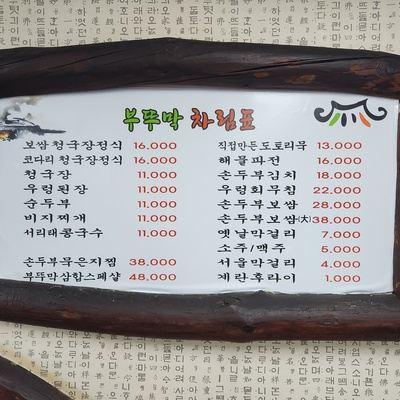 부뚜막 차림표
보쌈 청국장정식 16,000
코다리 청국장정식 16,000
청국장 11,000
우렁된장 11,000
순두부 11,000
비지찌개 11,000
서리태콩국수 11,000
손두부묵은지찜 38,000
부뚜막삼합스페샬 48,000
직접만든도토리묵 13,000
해물파전 16,000
손두부김치 18,000
우렁회무침 22,000
손두부보쌈 28,000
손두부보쌈(大) 38,000
옛날막걸리 7,000
소주/맥주 5,000
서울막걸리 4,000
계란후라이 1,000